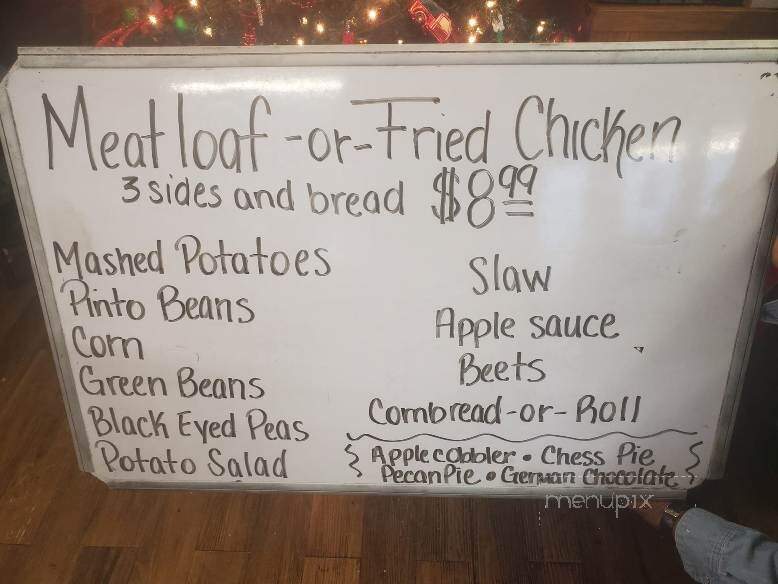 Meatloaf -or- Fried Chicken
3 sides and bread $8.99
Mashed Potatoes
Pinto Beans
Corn
Green Beans
Black Eyed Peas
Potato Salad
Slaw
Apple sauce
Beets
Cornbread -or- Roll
Apple cobbler • Chess Pie
Pecan Pie • German Chocolate
menupix